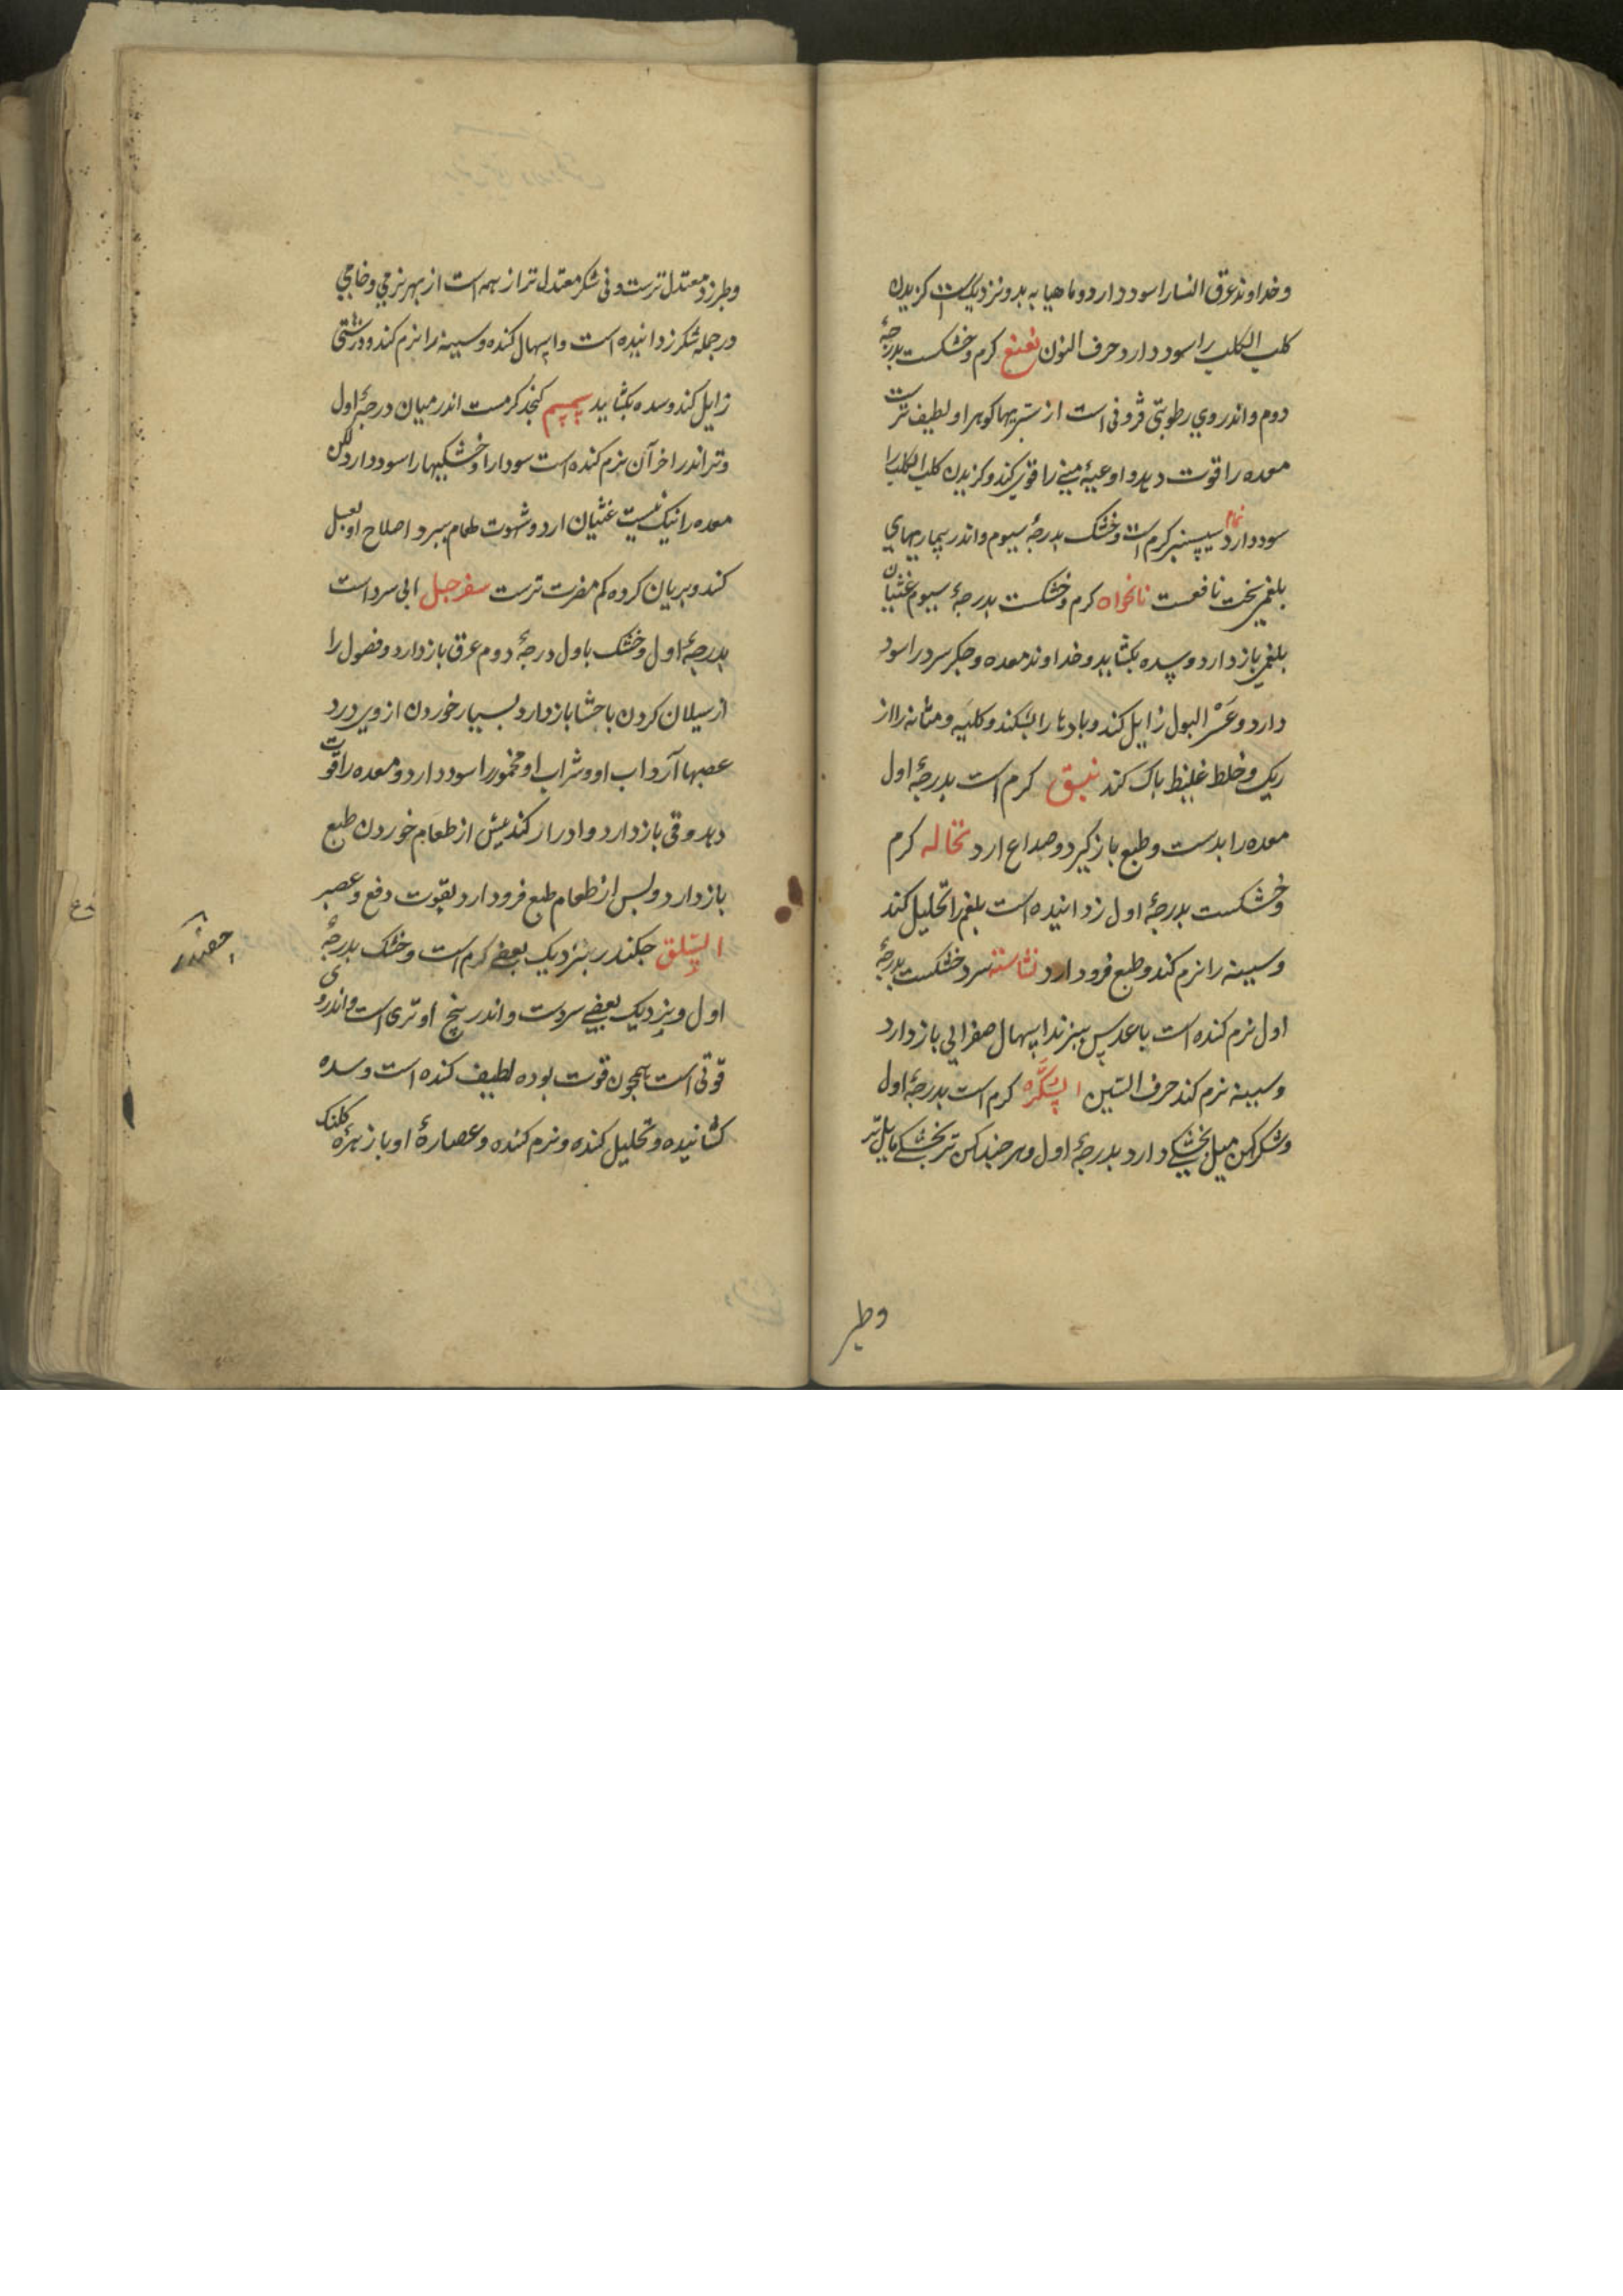 وخداوند عرق النسا را سود دارد و ماهیا به بدو نزدیک است کزیدن
کلب الکلب را سود دارد حرف النون نعنع کرم وخشکست بدرجهٔ
دوم واندروي رطوبتی فزونی است از سبزیها کوهر او لطیف ترست
معده را قوت دهد و اوعیهٔ منی را قوی کند و کزیدن کلب الکلب را
سود دارد نمام سیسنبر کرم است وخشک بدرجهٔ سیوم واندر بیماریهای
بلغمی سخت نافعست نانخواه کرم وخشکست بدرجهٔ سیوم غثیان
بلغمی باز دارد و سده بکشاید و خداوند معده و جکر سرد را سود
دارد و عسر البول زایل کند و بادها را بشکند و کلیه و مثانه را از
ریک و خلط غلیظ پاک کند نبق کرم است بدرجهٔ اول
معده را بدست و طبع باز کیرد و صداع ارد نخاله کرم
وخشکست بدرجهٔ اول زداینده است بلغم را تحلیل کند
وسینه را نرم کند و طبع فرود ارد نشاسته سرد خشکست بدرجهٔ
اول نرم کننده است با عدس ببزند اسهال صفرایی باز دارد
وسینه نرم کند حرف السین السکره کرم است بدرجهٔ اول
وشکر کهن میل بخشکی دارد بدرجهٔ اول وهر چند کهن تر بخشکی مایل تر
وطبر
وطبرزد معتدل ترست ونی شکر معتدل تر از همه است از بهر نرمی وخامی
ودر جمله شکر زداینده است واسهال کننده وسینه را نرم کند ودرشتی
زایل کند وسده بکشاید سمسم کنجد کرمست اندر میان درجهٔ اول
وتر اندر اخر آن نرم کننده است سودا را وخشکیها را سود دارد لکن
معده را نیک نیست غثیان ارد وشهوت طعام ببرد اصلاح او بعسل
کند وبریان کرده کم مضرت ترست سفرجل ابی سرد است
بدرجهٔ اول وخشک باول درجهٔ دوم عرق باز دارد وفضول را
از سیلان کردن باحشا باز دارد بسیار خوردن از وی درد
عصبها آرد اب او وشراب او مخمور را سود دارد ومعده را قوت
دهد وقی باز دارد وادرار کند بیش از طعام خوردن طبع
باز دارد وبس از طعام طبع فرود ارد بقوت دفع وعصر
السلق جکندر بنزدیک بعضی کرم است وخشک بدرجهٔ
اول وبنزدیک بعضی سردست واندر بیخ او تری است واندروی
قوتی است همچون قوت بوده لطیف کننده است وسده
کشانیده وتحلیل کننده ونرم کننده وعصارهٔ او با زهرهٔ کلنک
چغندر